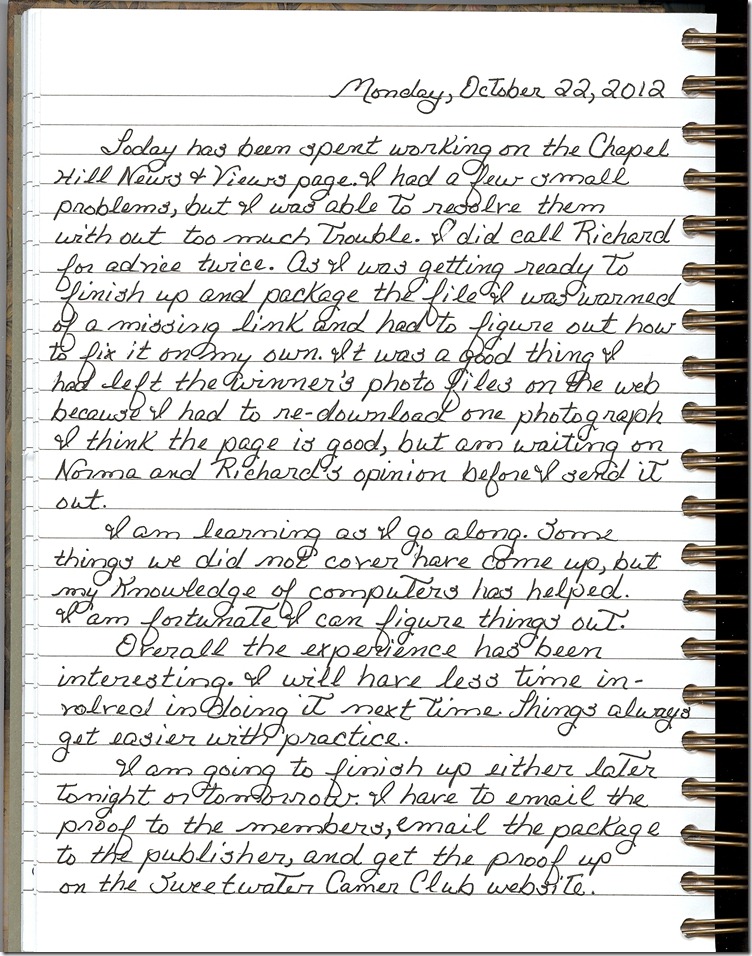 Monday, October 22, 2012
Today has been spent working on the Chapel
Hill News & Views page. I had a few small
problems, but I was able to resolve them
with out too much trouble. I did call Richard
for advice twice. As I was getting ready to
finish up and package the file I was warned
of a missing link and had to figure out how
to fix it on my own. It was a good thing I
had left the winner's photo files on the web
because I had to re-download one photograph
I think the page is good, but am waiting on
Norma and Richard's opinion before I send it
out.
I am learning as I go along. Some
things we did not cover have come up, but
my knowledge of computers has helped.
I am fortunate I can figure things out.
Overall the experience has been
interesting. I will have less time in-
volved in doing it next time. Things always
get easier with practice.
I am going to finish up either later
tonight or tomorrow. I have to email the
proof to the members, email the package
to the publisher, and get the proof up
on the Sweetwater Camer Club website.